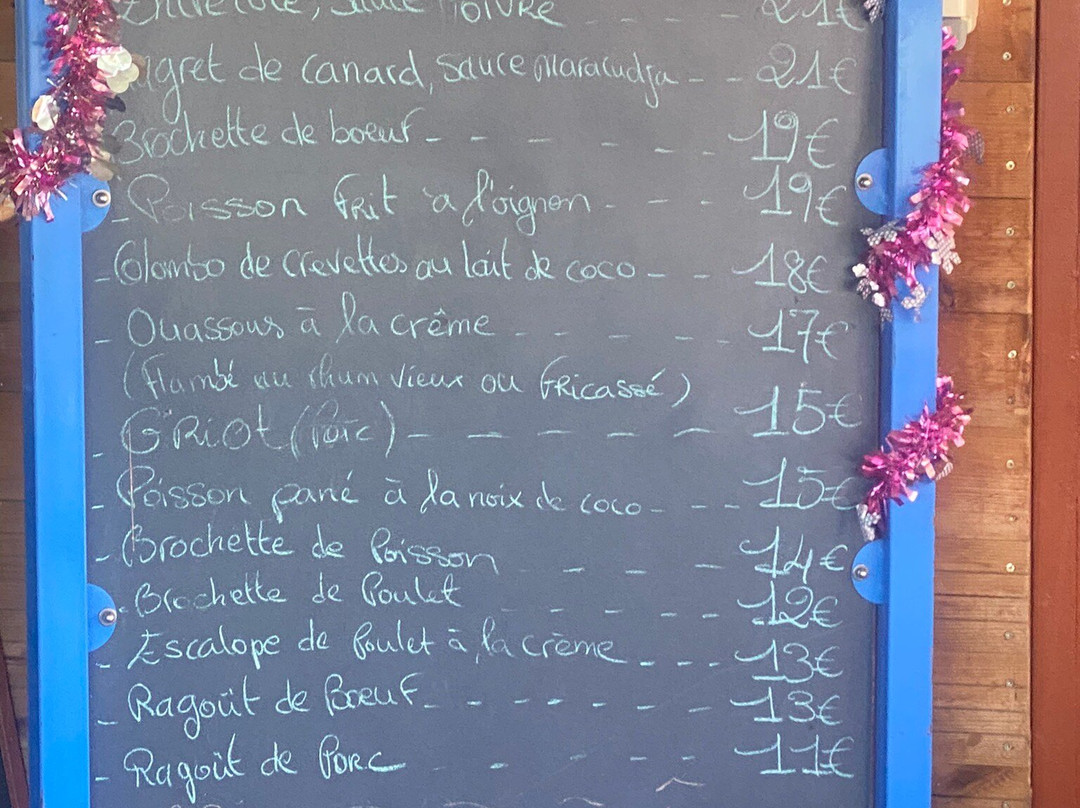 Entrecôte, Sauce POIVRE - - - - 21€
Magret de canard, sauce maracudja - - 21€
Brochette de boeuf - - - - - - 19€
- Poisson frit à l'oignon - - - 19€
- Colombo de crevettes au lait de coco - - 18€
- Ouassous à la crême - - - - - 17€
(Flambé au rhum vieux ou FRicassé)
- GRiot (Porc) - - - - - 15€
- Poisson pané à la noix de coco - - - 15€
- Brochette de Poisson - - - - 14€
- Brochette de Poulet - - - - - 12€
- Escalope de Poulet à la crème - - - 13€
- Ragoût de Boeuf - - - - - - - 13€
- Ragoût de Porc - - - - - 11€